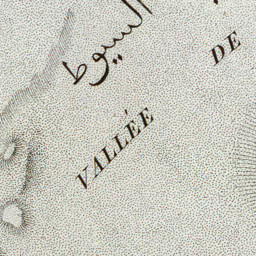 السيوط
VALLÉE
DE